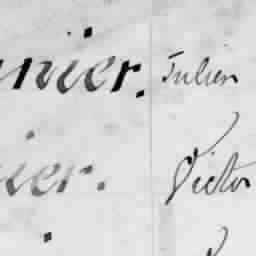 nier. Julien
ier. Victor